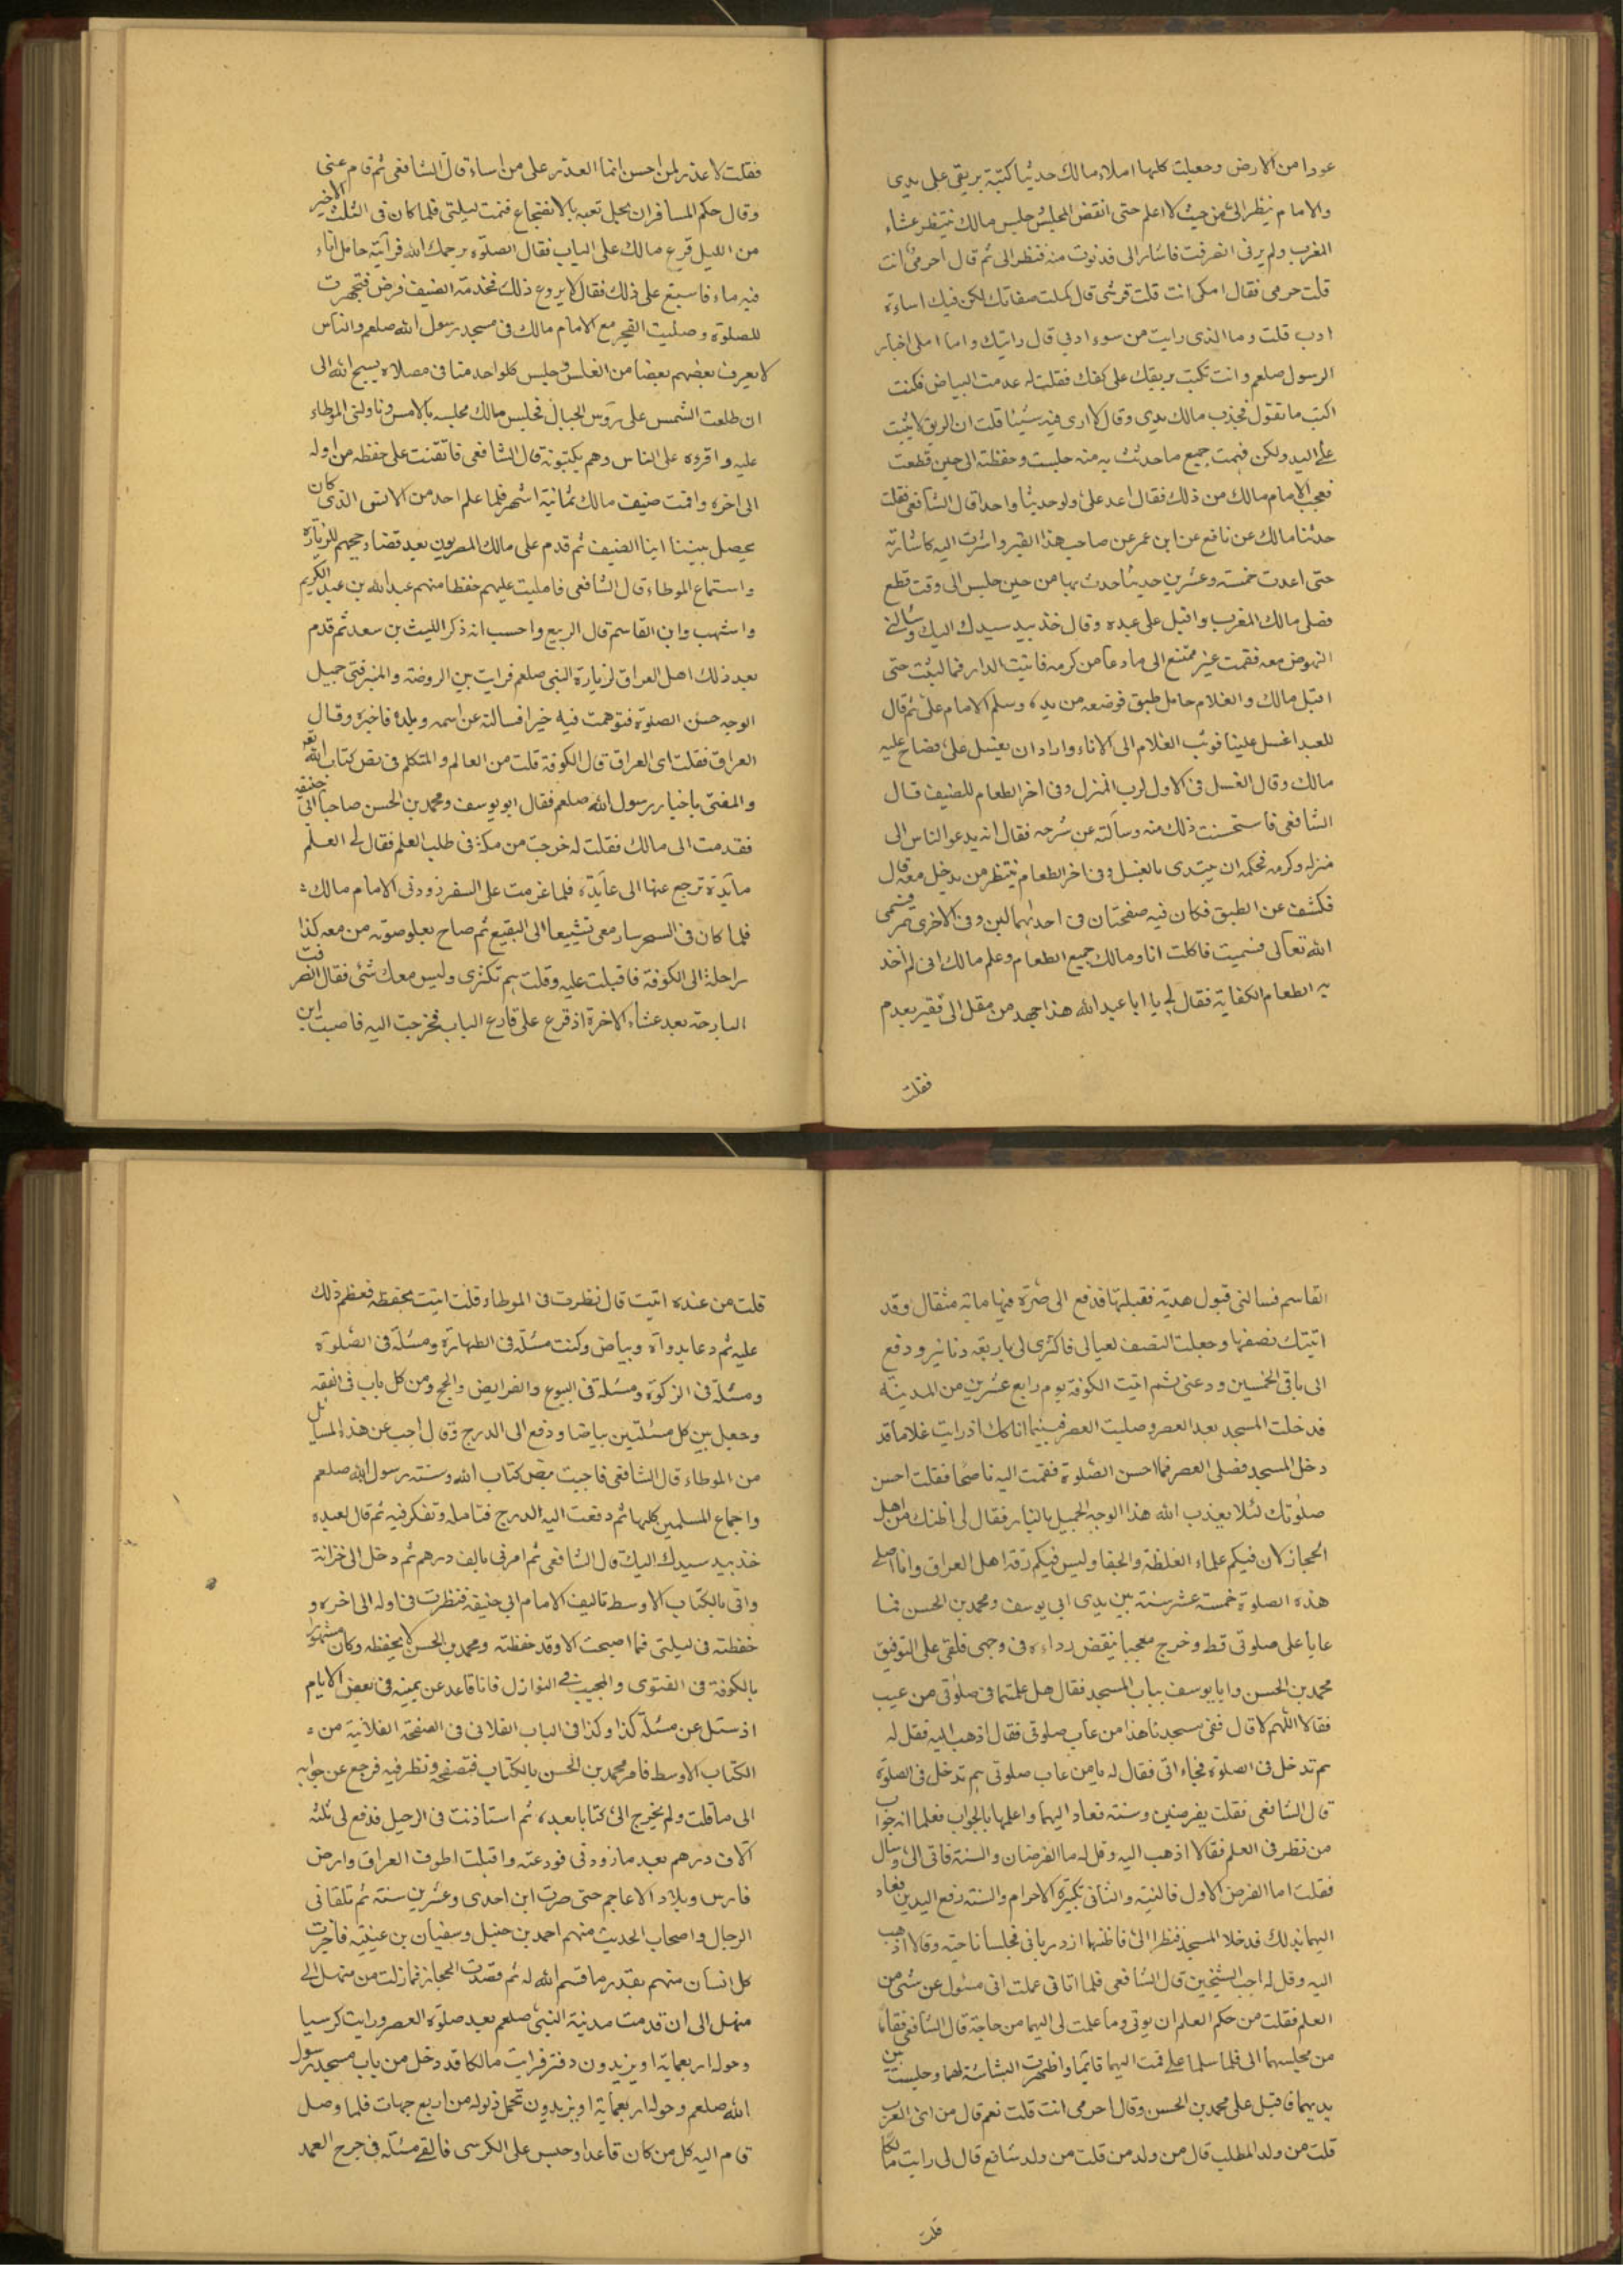 عودا من الارض وجعلت كلما املاء مالك حديثا كتبته بريقى على يدى
والامام ينظر الى من حيث لا اعلم حتى انقض المجلس جلس مالك ينتظر عشاء
المغرب ولم يرنى انصرفت فاشار الى فدنوت منه فنظر الى ثم قال احرمى انت
قلت حرمى فقال امكى انت قلت قرشى قال كملت صفاتك لكن فيك اساءة
ادب قلت وما الذى رايت من سوء ادبى قال رايتك وانا املى اخبار
الرسول صلعم وانت تكتب بريقك على كفك فقلت له عدمت البياض فكنت
اكتب ما تقول فجذب مالك يدى وقال لا ارى فيه شيئا قلت ان الريق لا يثبت
على اليد ولكن فهمت جميع ما حدثت به منه جلست وحفظته الى حين قطعت
فعجب الامام مالك من ذلك فقال اعد على ولو حديثا واحدا قال الشافعى فقلت
حدثنا مالك عن نافع عن ابن عمر عن صاحب هذا القبر واشرت اليه كاشارته
حتى اعدت خمسة وعشرين حديثا حدث بها من حين جلس الى وقت قطع
فصلى مالك المغرب واقبل على عبده وقال خذ بيد سيدك اليك وسالنى
النهوض معه فقمت غير ممتنع الى ما دعا من كرمه فاتيت الدار فما لبثت حتى
اقبل مالك والغلام حامل طبق فوضعه من يده وسلم الامام على ثم قال
للعبد اغسل علينا فوثب الغلام الى الاناء واراد ان يغسل على فصاح عليه
مالك وقال الغسل فى الاول لرب المنزل وفى اخر الطعام للضيف قال
الشافعى فاستحسنت ذلك منه وسالته عن شرحه فقال انه يدعو الناس الى
منزله وكرمه فحكمه ان يبتدى بالغسل وفى اخر الطعام ينتظر من يدخل معه قال
فكشف عن الطبق فكان فيه صفحتان فى احداهما لبن وفى الاخرى تمر فسمى
الله تعالى فسميت فاكلت انا ومالك جميع الطعام وعلم مالك انى لم اخذ
به الطعام الكفاية فقال لى يا ابا عبدالله هذا جهد من مقل الى فقير بعدم
فقلت
فقلت لا عذر لمن احسن انما العذر على من اساء قال الشافعى ثم قام عنى
وقال حكم المسافر ان يحل تعبه بالاضجاع فنمت ليلتى فلما كان فى الثلث الاخير
من الليل قرع مالك على الباب فقال الصلوة يرحمك الله فرآيته حامل اناء
فيه ماء فاسبغ على ذلك فقال لا يروع ذلك فخدمة الضيف فرض فتجهزت
للصلوة وصليت الفجر مع الامام مالك فى مسجد رسول الله صلعم والناس
لا يعرف بعضهم بعضا من الغلس وجلس كلوا حد منا فى مصلاه يسبح الله الى
ان طلعت الشمس على رؤس الجبال فجلس مالك مجلسه بالامس وناولنى الموطاء
عليه واقروه على الناس وهم يكتبونه قال الشافعى فاتقنت على حفظه من اوله
الى اخره واقمت ضيف مالك ثمانية اشهر فلما علم احد من الانس الذى كان
يحصل بيننا اينا الضيف ثم قدم على مالك المصريون بعد قضاء حجهم للزيارة
واستماع الموطاء قال الشافعى فامليت عليهم حفظا منهم عبدالله بن عبد الكريم
واشهب وابن القاسم قال الربيع واحسب انه ذكر الليث بن سعد ثم قدم
بعد ذلك اهل العراق لزيارة النبى صلعم فرايت بين الروضة والمنبر فتى جميل
الوجه حسن الصلوة فتوهمت فيه خيرا فسالته عن اسمه وبلده فاخبره وقال
العراق فقلت اى العراق قال الكوفة قلت من العالم والمتكلم فى نص كتاب الله تعه
والمفتى باخبار رسول الله صلعم فقال ابو يوسف ومحمد بن الحسن صاحبا ابى حنيفه
فقدمت الى مالك فقلت له خرجت من مكة فى طلب العلم فقال لى العلم
مآيدة ترجع عنها الى عآيدة فلما عزمت على السفر زودنى الامام مالك
فلما كان فى السحر سار معى تشييعا الى البقيع ثم صاح بعلو صوته من معه كذا
راحلة الى الكوفة فاقبلت عليه وقلت بم تكترى وليس معك شئ فقال انصرفت
البارحة بعد عشاء الاخرة اذ قرع على قارع الباب فخرجت اليه فاصبت ابن
القاسم فسالنى قبول هدية فقبلتها فدفع الى صرة فيها ماية مثقال وقد
اتيتك نصفها وجعلت النصف لعيالى فاكترى لى باربعة دنانير ودفع
الى باقى الخمسين ودعنى ثم اتيت الكوفة يوم رابع عشرين من المدينة
فدخلت المسجد بعد العصر وصليت العصر فبينما انا كك اذ رايت غلاما قد
دخل المسجد فصلى العصر فما احسن الصلوة فقمت اليه ناصحا فقلت احسن
صلوتك لئلا يعذب الله هذا الوجه الجميل بالنار فقال لى اظنك من اهل
الحجاز لان فيكم علماء الغلظة والجفا وليس فيكم رقة اهل العراق وانا اصلى
هذه الصلوة خمسة عشر سنة بين يدى ابى يوسف ومحمد بن الحسن فما
عابا على صلوتى قط وخرج معجبا ينفض رداءه فى وجهى فلقى على التوفيق
محمد بن الحسن وابا يوسف بباب المسجد فقال هل علمتما فى صلوتى من عيب
فقالا اللهم لا قال ففى مسجدنا هذا من عاب صلوتى فقال اذهب اليه فقل له
بم تدخل فى الصلوة فجاء انى فقال له يا من عاب صلوتى بم تدخل فى الصلوة
قال الشافعى فقلت بفرضين وسنة فعاد اليهما واعلمها بالجواب فعلما انه جواب
من نظر فى العلم فقالا اذهب اليه وقل له ما الفرضان والسنة فاتى الى وسال
فقلت اما الفرض الاول فالنية والثانى تكبيرة الاحرام والسنة رفع اليدين فعاد
اليهما بذلك فدخلا المسجد فنظرا الى فاظنهما ازدريانى فجلسا ناحية وقالا اذهب
اليه وقل له اجب الشيخين قال الشافعى فلما اتانى علمت انى مسئول عن شئ من
العلم فقلت من حكم العلم ان يوتى وما علمت لى اليهما من حاجة قال الشافعى فقاما
من مجلسهما الى فلما سلما على قمت اليهما قايما واظهرت البشاشة لهما وجلست بين
يديهما فاقبل على محمد بن الحسن وقال احرمى انت قلت نعم قال من اى العرب
قلت من ولد المطلب قال من ولد من قلت من ولد شافع قال لى رايت مالكا
قلت
قلت من عنده اتيت قال نظرت فى الموطاء قلت اتيت بحفظه فعظم ذلك
عليه ثم دعا بدواة وبياض وكتب مسئلة فى الطهارة ومسئلة فى الصلوة
ومسئلة فى الزكوة ومسئلة فى البيوع والفرايض والحج ومن كل باب فى الفقه
وجعل بين كل مسئلتين بياضا ودفع الى الدرج وقال اجب عن هذه المسايل
من الموطاء قال الشافعى فاجبت بنص كتاب الله وسنته رسول الله صلعم
واجماع المسلمين كلها ثم دفعت اليه الدرج فتامله وتفكر فيه ثم قال لعبده
خذ بيد سيدك اليك قال الشافعى ثم امر لى بالف درهم ثم دخل الى خزانة
واتى بالكتاب الاوسط تاليف الامام ابى حنيفة فنظرت فى اوله الى اخره و
حفظته فى ليلتى فما اصبحت الا وقد حفظته ومحمد بن الحسن لا يحفظه وكان مشهور
بالكوفة فى الفتوى والمجيب فى النوازل فانا قاعد عن يمينه فى بعض الايام
اذ سئل عن مسئلة كذا وكذا فى الباب الفلانى فى الصفحة الفلانية من
الكتاب الاوسط فامر محمد بن الحسن بالكتاب فتصفحه ونظر فيه فرجع عن جوابه
الى ما قلت ولم يخرج الى كتابا بعده ثم استاذنت فى الرحيل فدفع لى ثلثه
آلاف درهم بعد ما زودنى فودعته واقبلت اطوف العراق وارض
فارس وبلاد الاعاجم حتى صرت ابن احدى وعشرين سنة ثم تلقانى
الرجال واصحاب الحديث منهم احمد بن حنبل وسفيان بن عيينه فاجزت
كل انسان منهم بقدر ما قسم الله له ثم قصدت الحجاز فما زلت من منهل الى
منهل الى ان قدمت مدينة النبى صلعم بعد صلوة العصر ورايت كرسيا
وحوله اربعماية او يزيدون دفتر فرايت مالكا قد دخل من باب مسجد رسول
الله صلعم وحوله اربعماية او يزيدون تحمل ذيوله من اربع جهات فلما وصل
قام اليه كل من كان قاعدا وجلس على الكرسى فالقى مسئلة فى جرح العمد